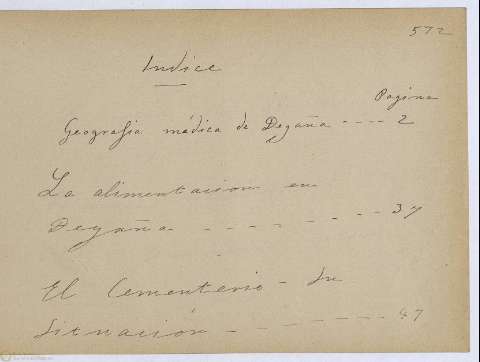 572
Indice
Pagina
Geografia médica de Degaña ---- 2
La alimentacion en
Degaña. - - - - - - - - 37
El Cementerio - Su
Situación - - - - - - - - 47